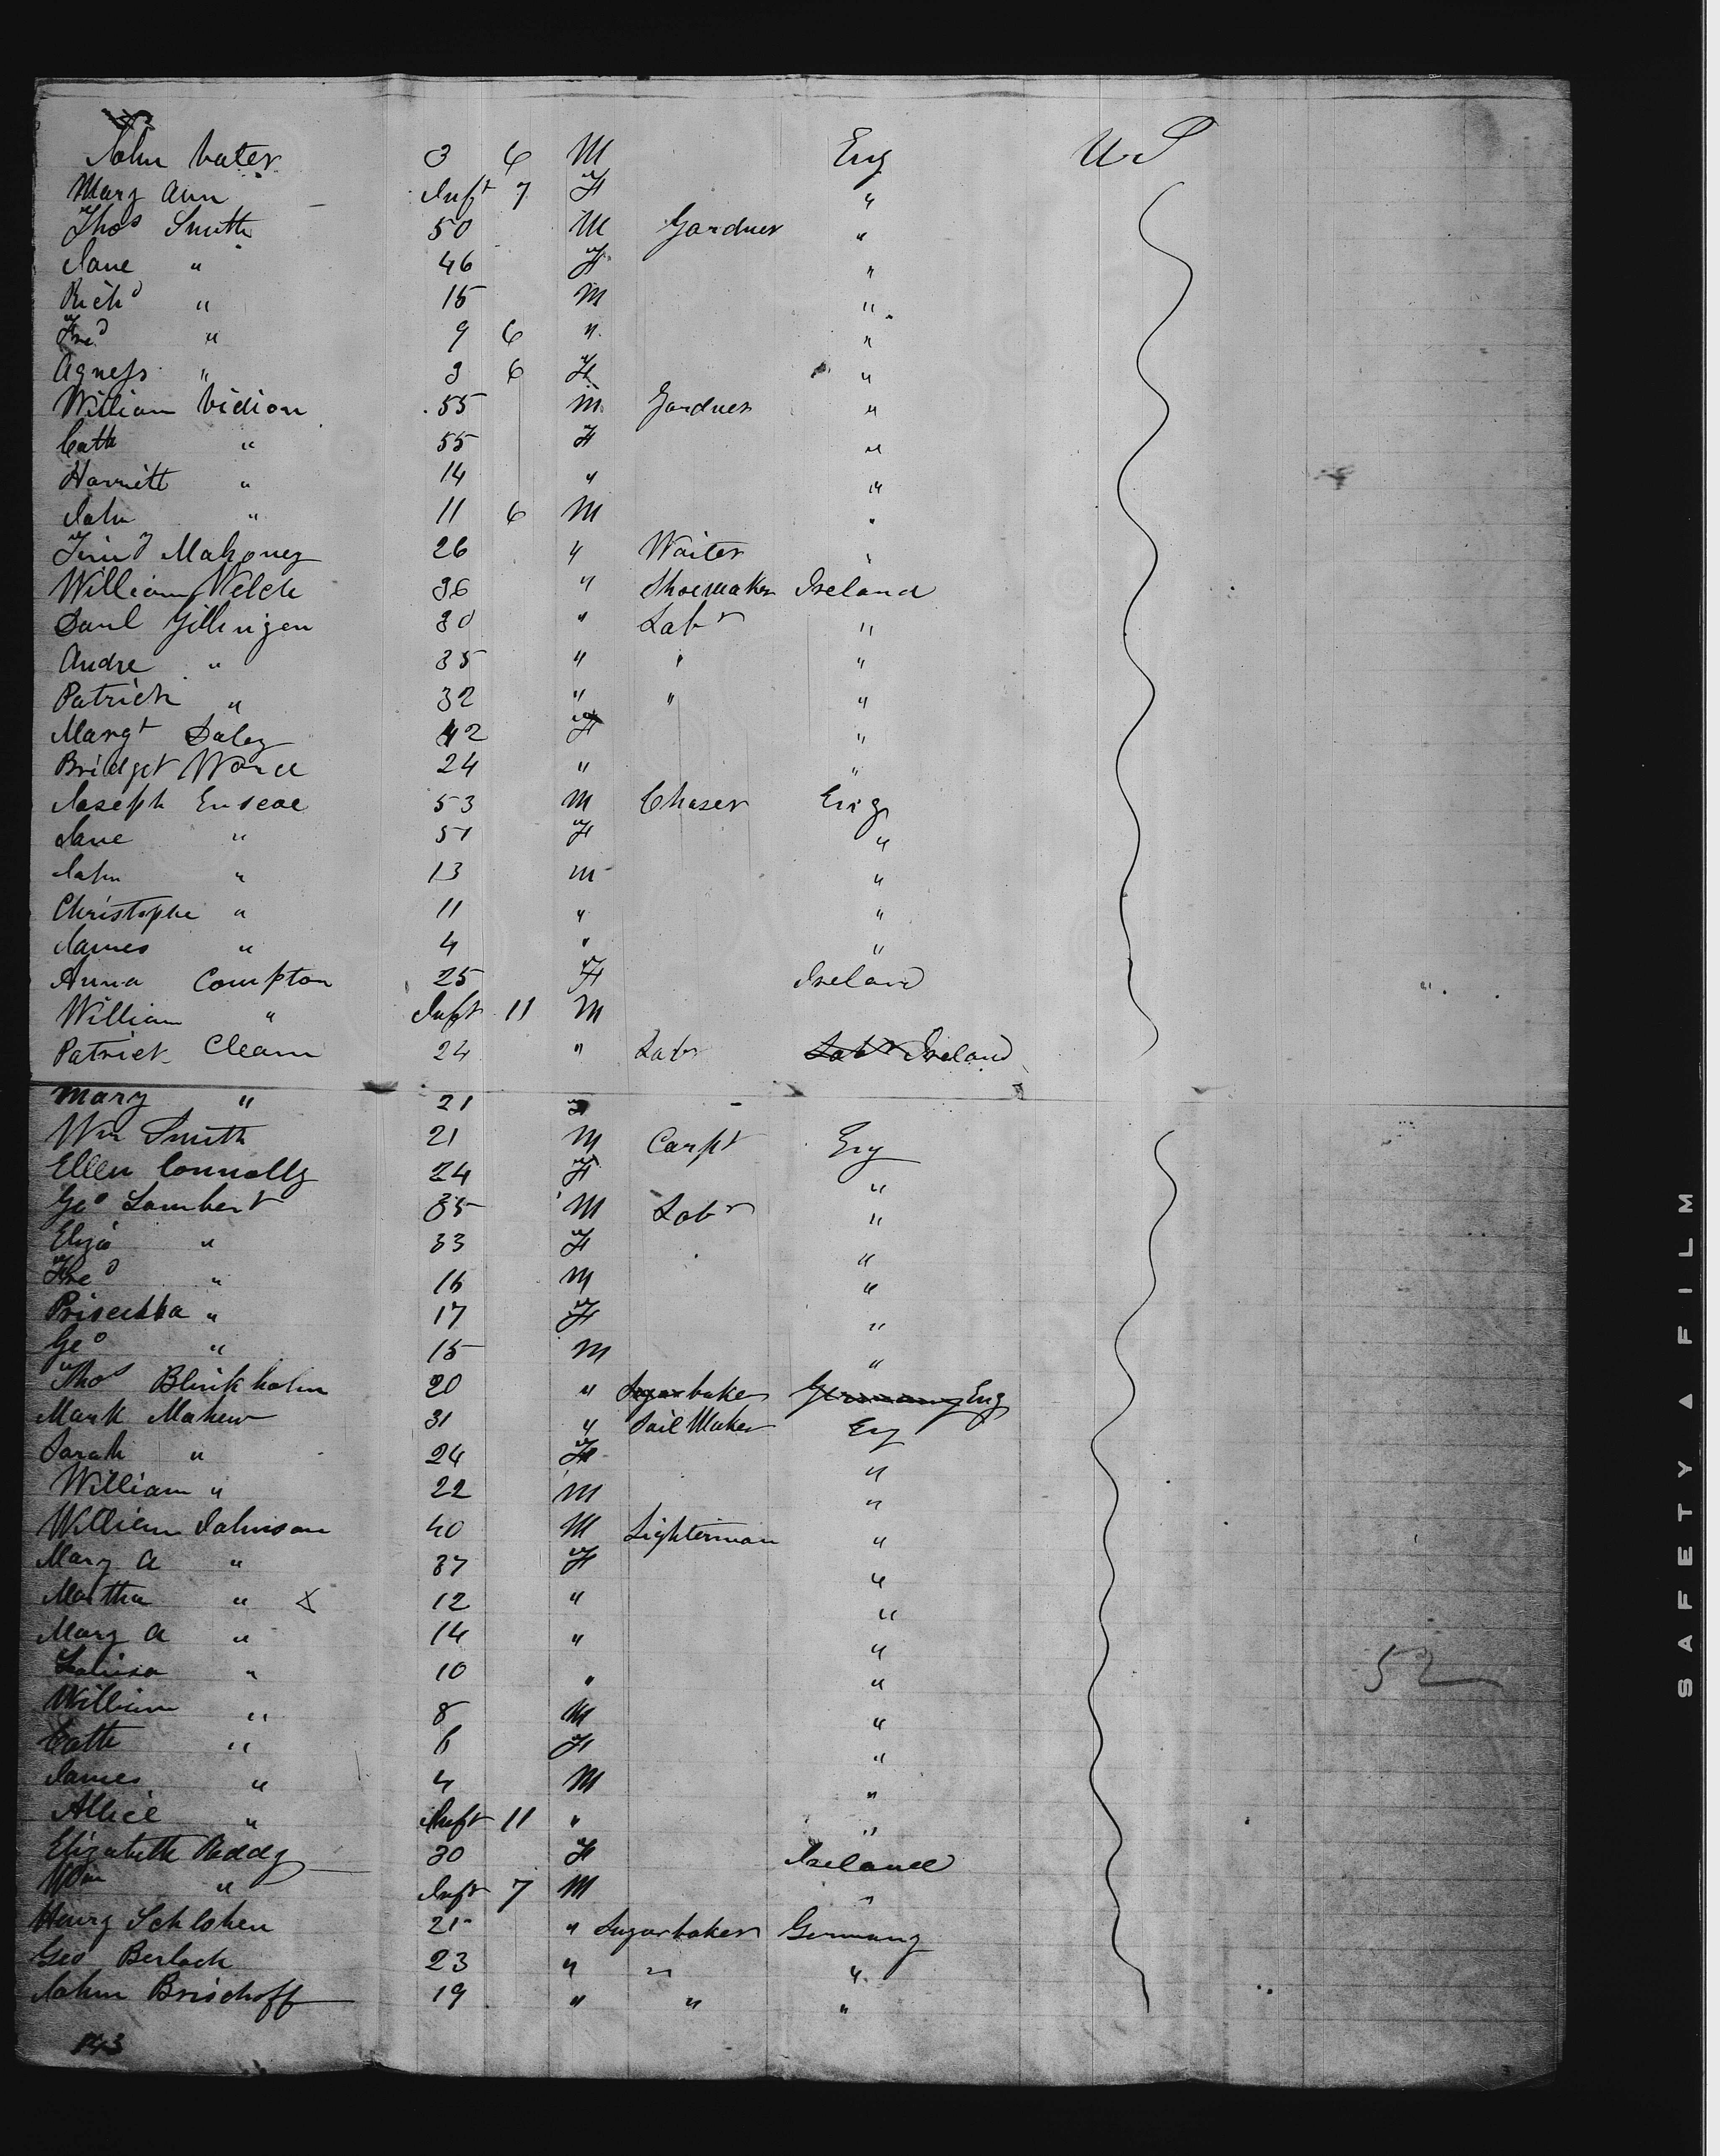 John Vater 3 6 M Eng U S
Mary Ann Inft 7 F "
Thos Smith 50 M Gardner "
Jane " 46 F "
Richd " 15 M "
Fred " 9 6 " "
Agness " 3 6 F "
William Vidion 55 M Gardner "
Cath " 55 F "
Harriett " 14 " "
John " 11 6 M "
Mahoney 26 " Waiter "
William Welch 36 " Shoemaker Ireland
Danl Gillingen 30 " Labr "
Andre " 35 " " "
Patrick " 32 " " "
Margt Daley 42 F "
Bridget Ward 24 " "
Joseph Enscoe 53 M Chaser Eng
Jane " 51 F "
John " 13 M "
Christophe " 11 " "
James " 4 " "
Anna Compton 25 F Ireland
William " Inft 11 M
Patrick Cleam 24 " Labr Labr Ireland
Mary " 21 F
Wm Smith 21 M Carpt Eng
Ellen Connolly 24 F "
Geo Lambert 35 M Labr "
Eliza " 33 F "
Fred " 16 M "
Priscilla " 17 F "
Geo " 15 M "
Thos Blinkholm 20 " Sugarbaker Germany Eng
Mark Mahew 31 " Sail Maker Eng
Sarah " 24 F "
William " 22 M "
William Johnson 40 M Lighterman "
Mary A " 37 F "
Martha " X 12 " "
Mary A " 14 " "
Louisa " 10 " " 52
William " 8 M "
Cath " 6 F "
James " 4 M "
Allice " Inft 11 " "
Elizabeth Roddy 30 F Ireland
Wm " Inft 7 M "
Henry Schloken 21 " Sugarbaker Germany
Geo Berlock 23 " " "
John Brischoff 19 " " "
143
SAFETY ▲ FILM